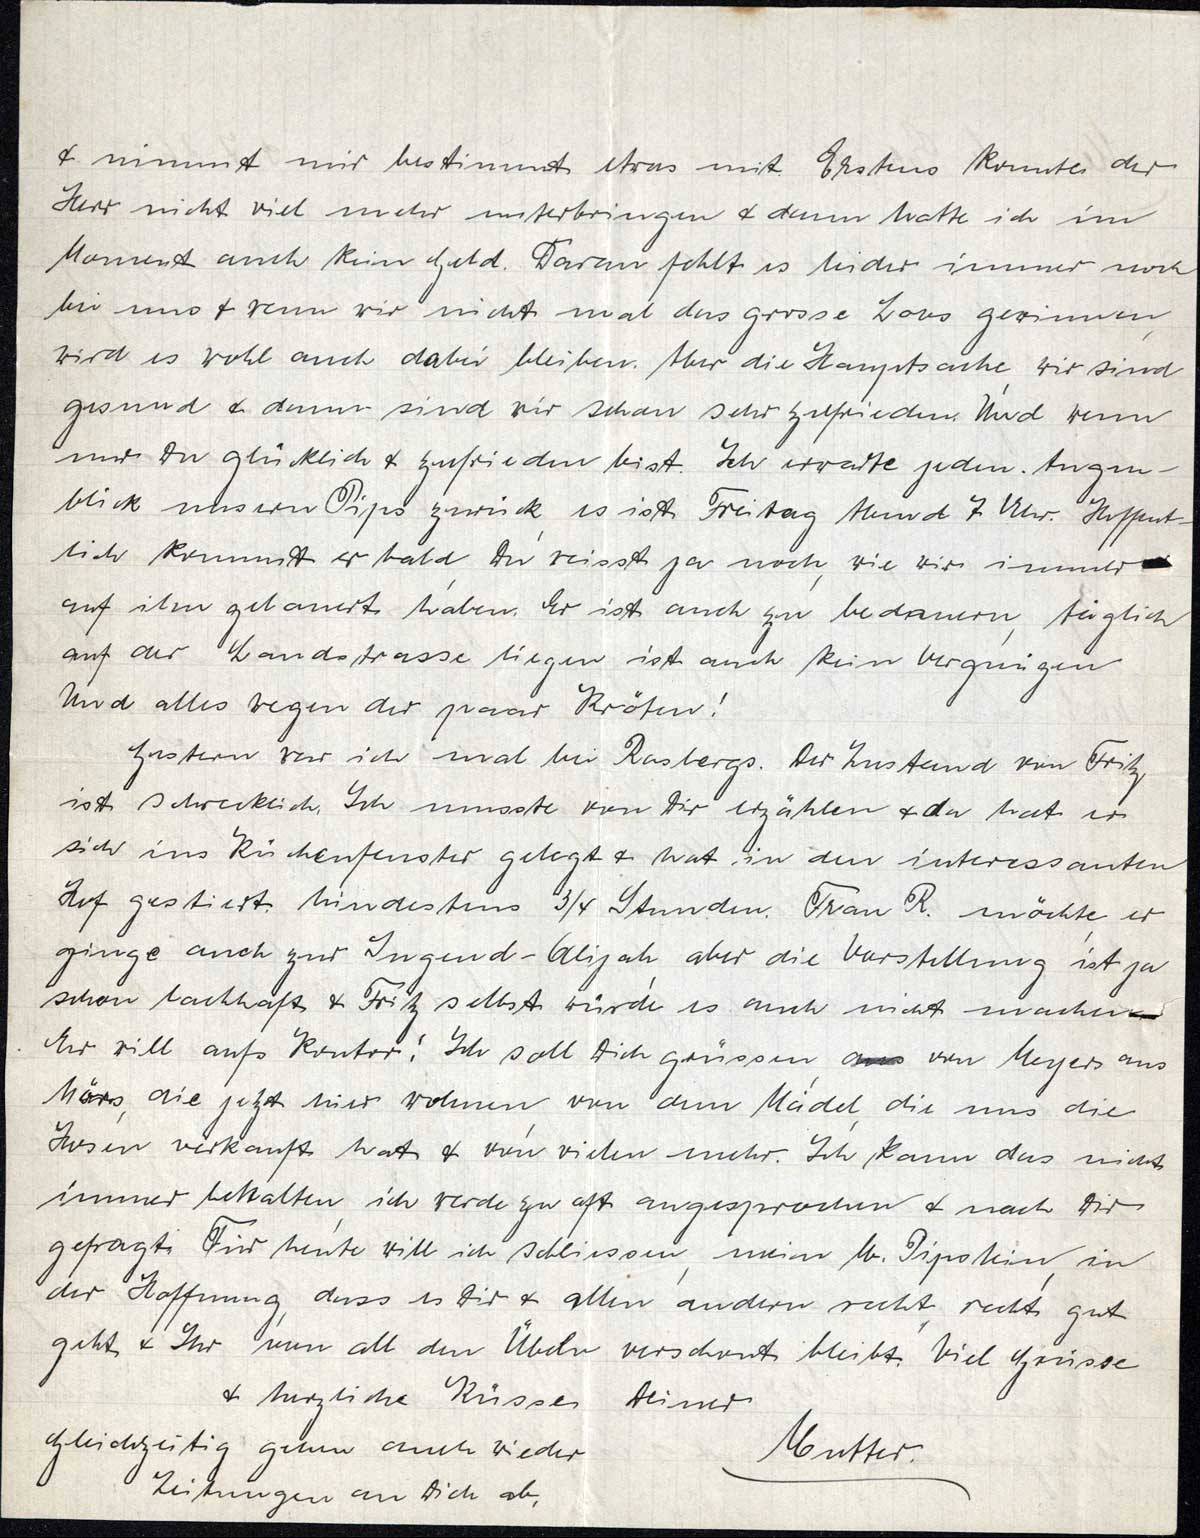 & nimmt mir bestimmt etwas mit. Erstens konnte der
Herr nicht viel mehr unterbringen & dann hatte ich im
Moment auch kein Geld. Daran fehlt es leider immer noch
bei uns & wenn wir nicht mal das grosse Loos gewinnen,
wird es wohl auch dabei bleiben. Aber die Hauptsache, wir sind
gesund & dann sind wir schon sehr zufrieden. Und wenn
nur Du glücklich & zufrieden bist. Ich erwarte jeden Augen-
blick unsern Pips zurück, es ist Freitag Abend 7 Uhr. Hoffent-
lich kommt er bald. Du weisst ja noch, wie wir immer
auf ihn gelauert haben. Er ist auch zu bedauern, täglich
auf der Landstrasse liegen ist auch kein Vergnügen
Und alles wegen der paar Kröten!
Gestern war ich mal bei Rosbergs. Der Zustand von Fritz
ist schrecklich. Ich musste von Dir erzählen & da hat er
sich ins Küchenfenster gelegt & hat in den interessanten
Hof gestiert. Mindestens 3/4 Stunden. Frau R. möchte, er
ginge auch zur Jugend-Alijah, aber die Vorstellung ist ja
schon lachhaft & Fritz selbst würde es auch nicht machen
Er will aufs Kontor! Ich soll Dich grüssen, von Meyers aus
Mörs, die jetzt hier wohnen von dem Mädel, die uns die
Hosen verkauft hat & von vielen mehr. Ich kann das nicht
immer behalten, ich werde zu oft angesprochen & nach Dir
gefragt. Für heute will ich schliessen, mein lb. Pipslein, in
der Hoffnung, dass es Dir & allen andern recht, recht gut
geht & Ihr von all den Übeln verschont bleibt. Viel Grüsse
& herzliche Küsse Deiner
Mutter.
Gleichzeitig gehen auch wieder
Zeitungen an Dich ab.